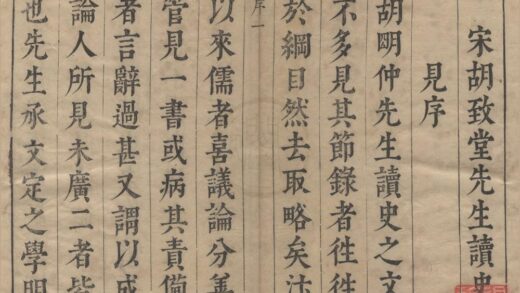 宋胡致堂先生讀史
見序
胡明仲先生讀史之文
不多見其節錄者徃徃
於綱目然去取略矣
序一
以來儒者喜議論分善
管見一書或病其責備
者言辭過甚又謂以成
論人所見未廣二者皆
也先生承文定之學明